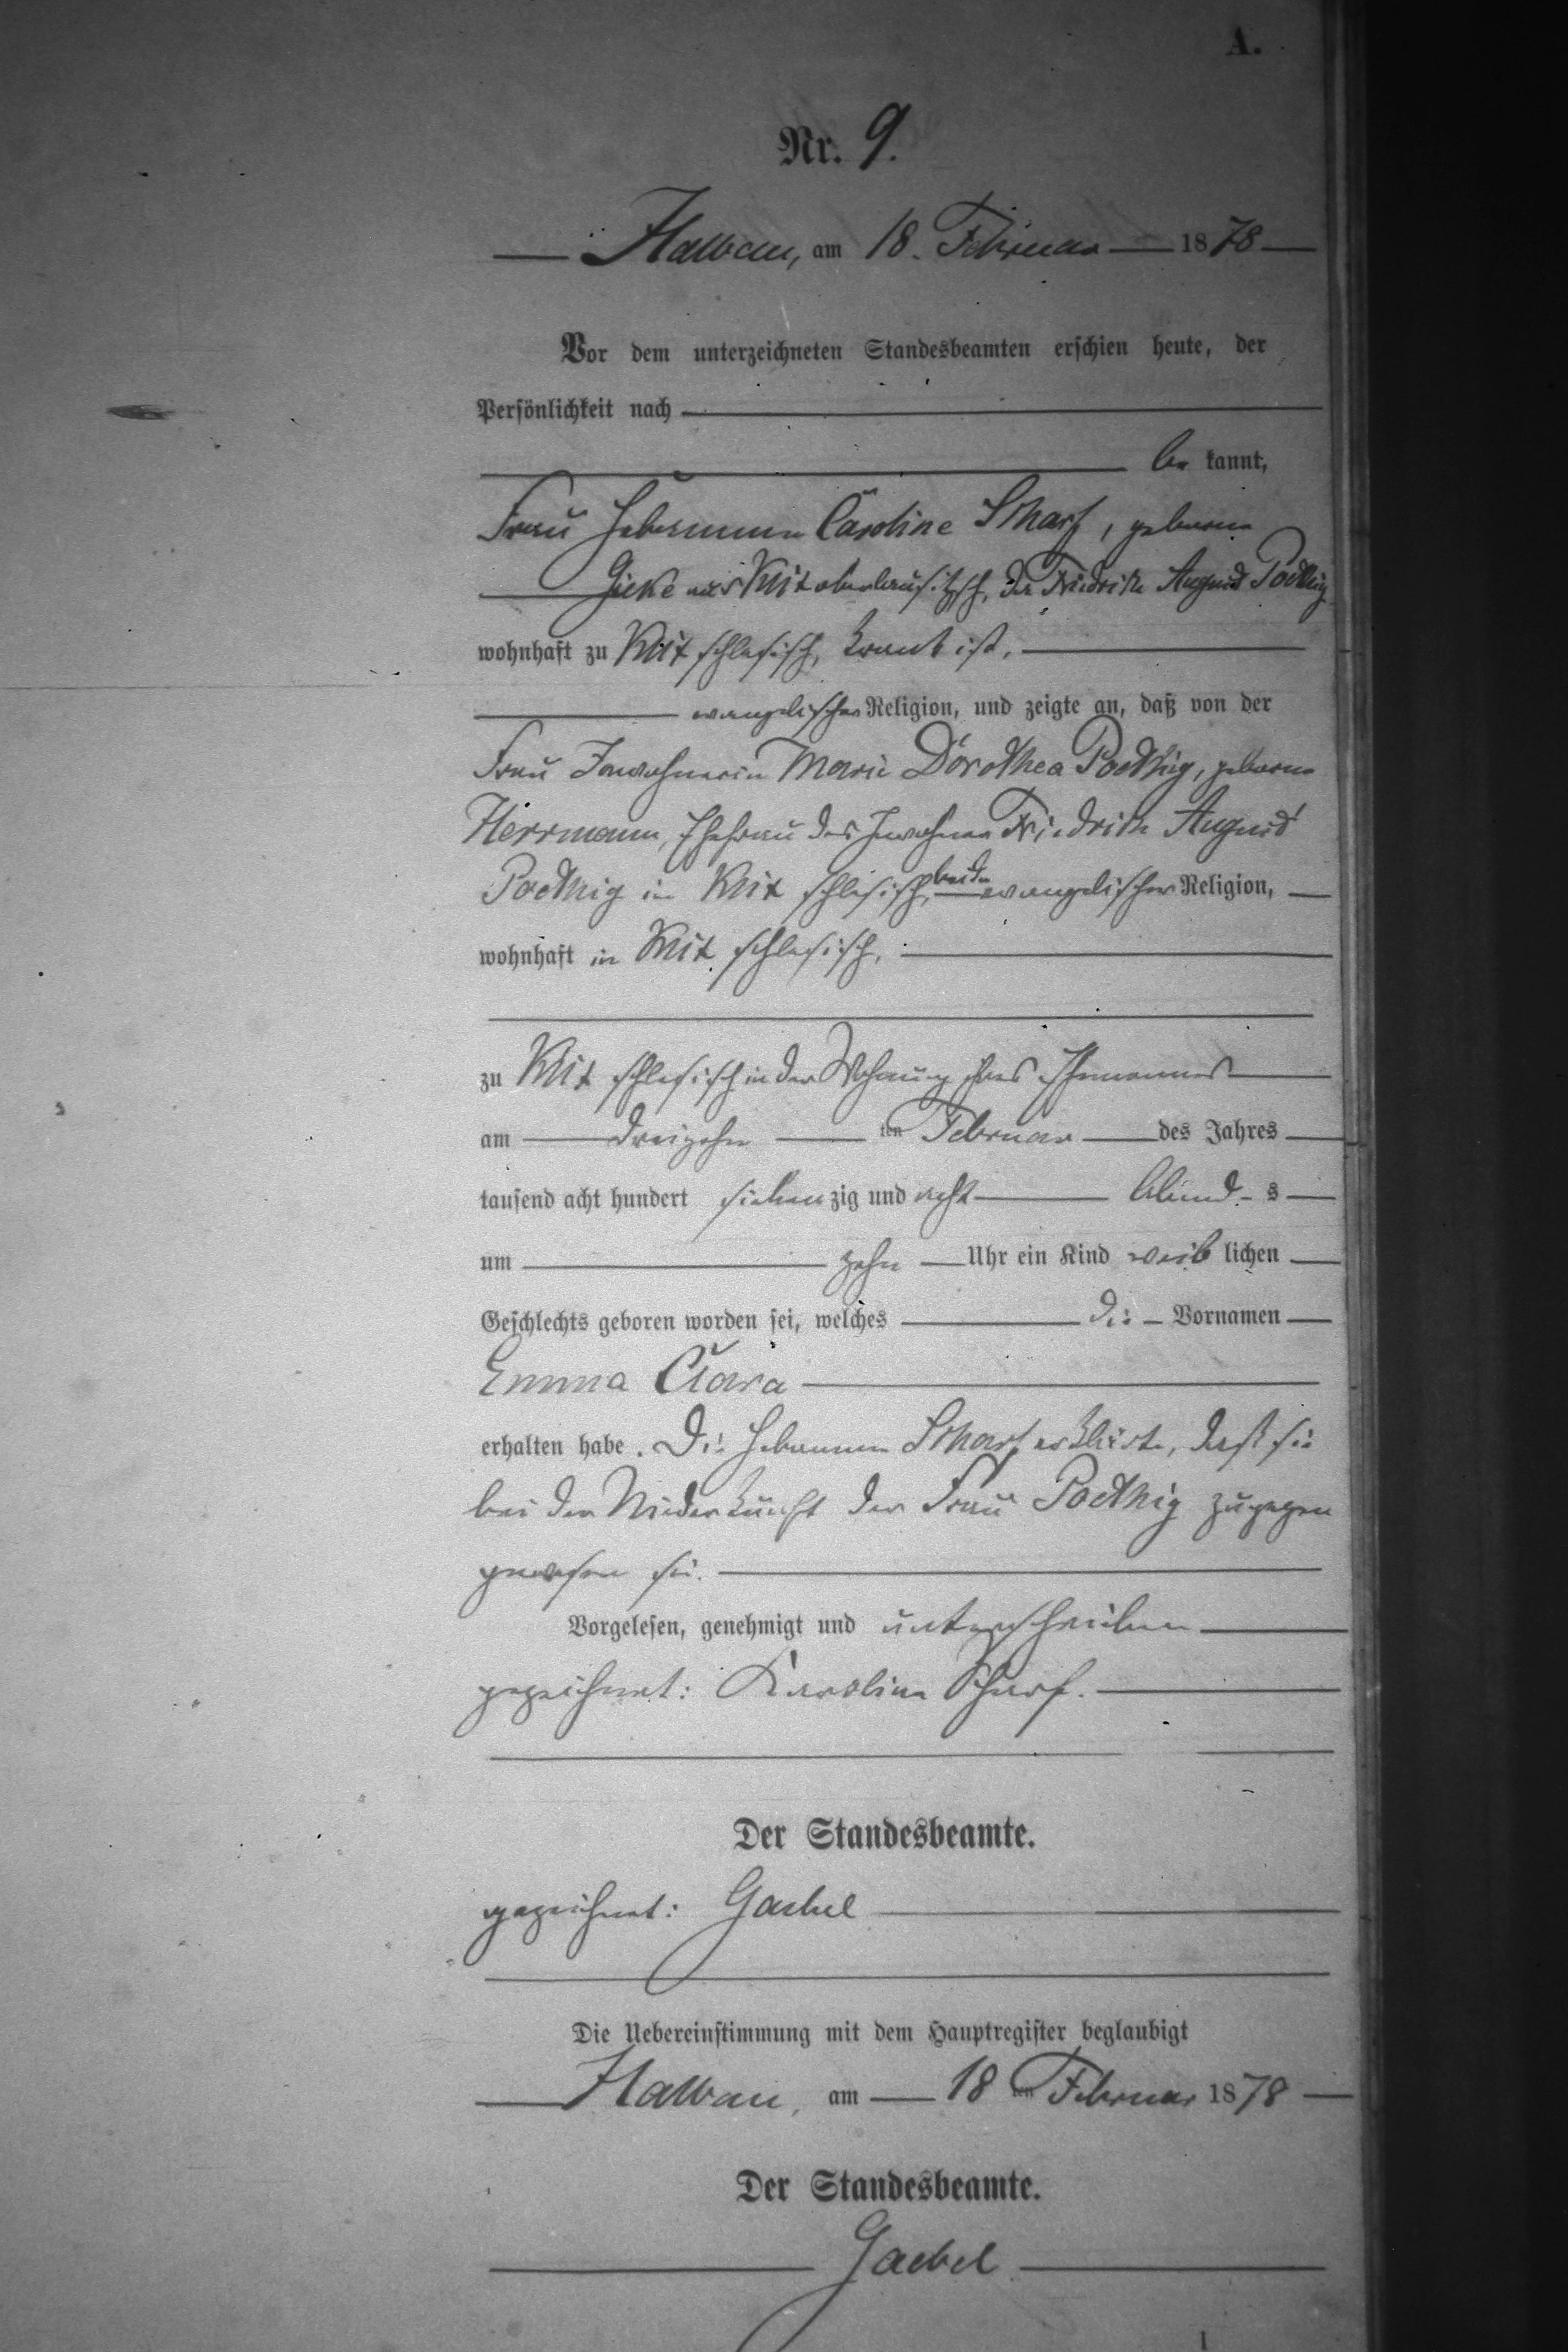 A.
Nr. 9.
Halbau, am 18. Februar 1878
Vor dem unterzeichneten Standesbeamten erschien heute, der
Persönlichkeit nach
be kannt,
Frau Hebamme Caroline Scharf, geborne
aus oberlausitzisch, da Friedrich August Poethig
wohnhaft zu schlesisch, krank ist.
evangelischer Religion, und zeigte an, daß von der
Frau Inwohnerin Marie Dorothea Poethig, geborne
Herrmann, Ehefrau des Inwohner Friedrich August
Poethig in schlesisch, beide evangelischer Religion,
wohnhaft in schlesisch,
zu schlesisch in der Wohnung ihres Ehemannes
am dreizehn ten Februar des Jahres
tausend acht hundert siebenzig und acht Abend s
um zehn Uhr ein Kind weib lichen
Geschlechts geboren worden sei, welches die Vornamen
Emma Clara
erhalten habe. Die Hebamme Scharf erklärte, daß sie
bei der Niederkunft der Frau Poethig zugegen
gewesen sei.
Vorgelesen, genehmigt und unterschrieben
gezeichnet: Karoline Scharf.
Der Standesbeamte.
gezeichnet: Gaebel
Die Uebereinstimmung mit dem Hauptregister beglaubigt
Halbau, am 18 ten Februar 1878
Der Standesbeamte.
Gaebel
1